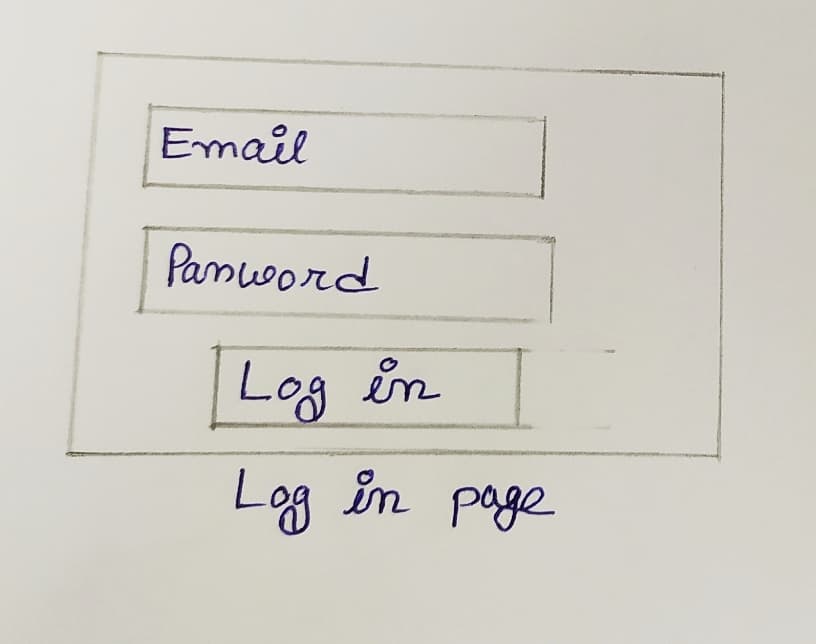 Email
Password
Log in
Log in page